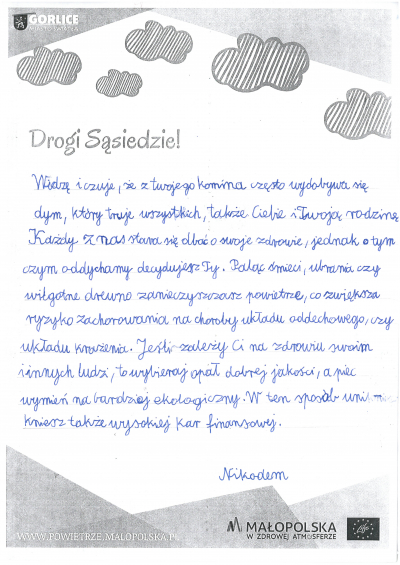 GORLICE
MIASTO ŚWIATŁA
Drogi Sąsiedzie!
Widzę i czuję, że z twojego komina często wydobywa się
dym, który truje wszystkich, także Ciebie i Twoją rodzinę
Każdy z nas stara się dbać o swoje zdrowie, jednak o tym
czym oddychamy decydujesz Ty. Paląc śmieci, ubrania czy
wilgotne drewno zanieczyszczasz powietrze, co zwiększa
ryzyko zachorowania na choroby układu oddechowego, czy
układu krążenia. Jeśli zależy Ci na zdrowiu swoim
i innych ludzi, to wybieraj opał dobrej jakości, a piec
wymień na bardziej ekologiczny. W ten sposób unik-
kniesz także wysokiej kar finansowej.
Nikodem
WWW.POWIETRZE.MALOPOLSKA.PL
MAŁOPOLSKA
W ZDROWEJ ATMOSFERZE